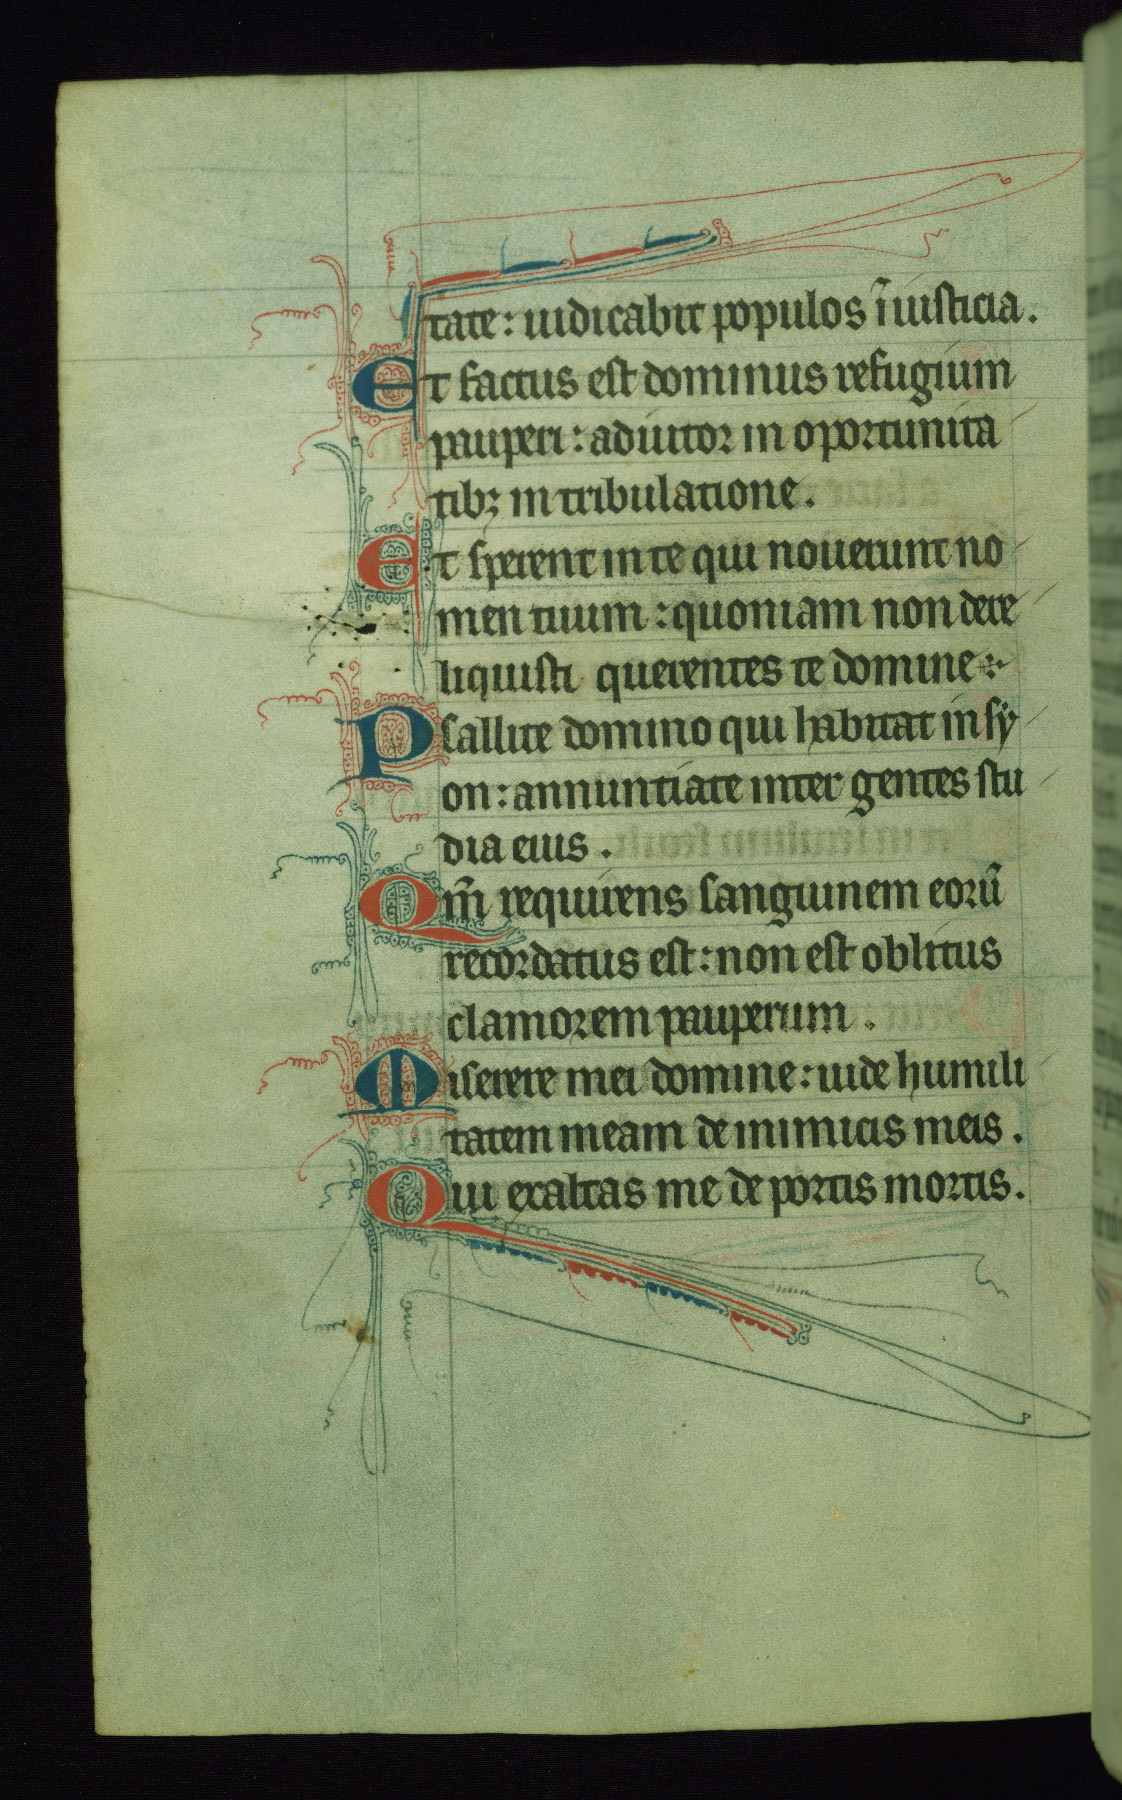 tate: iudicabit populos ī iusticia.
Et factus est dominus refugium
pauperi: adiutor in oportunita
tibꝫ in tribulatione.
Et sperent in te qui nouerunt no
men tuum: quoniam non dere
liquisti querentes te domine.
Psallite domino qui habitat in sy
on: annuntiate inter gentes stu
dia eius.
Qm̄ requirens sanguinem eorū
recordatus est: non est oblitus
clamorem pauperum.
Miserere mei domine: uide humili
tatem meam de inimicis meis.
Qui exaltas me de portis mortis.